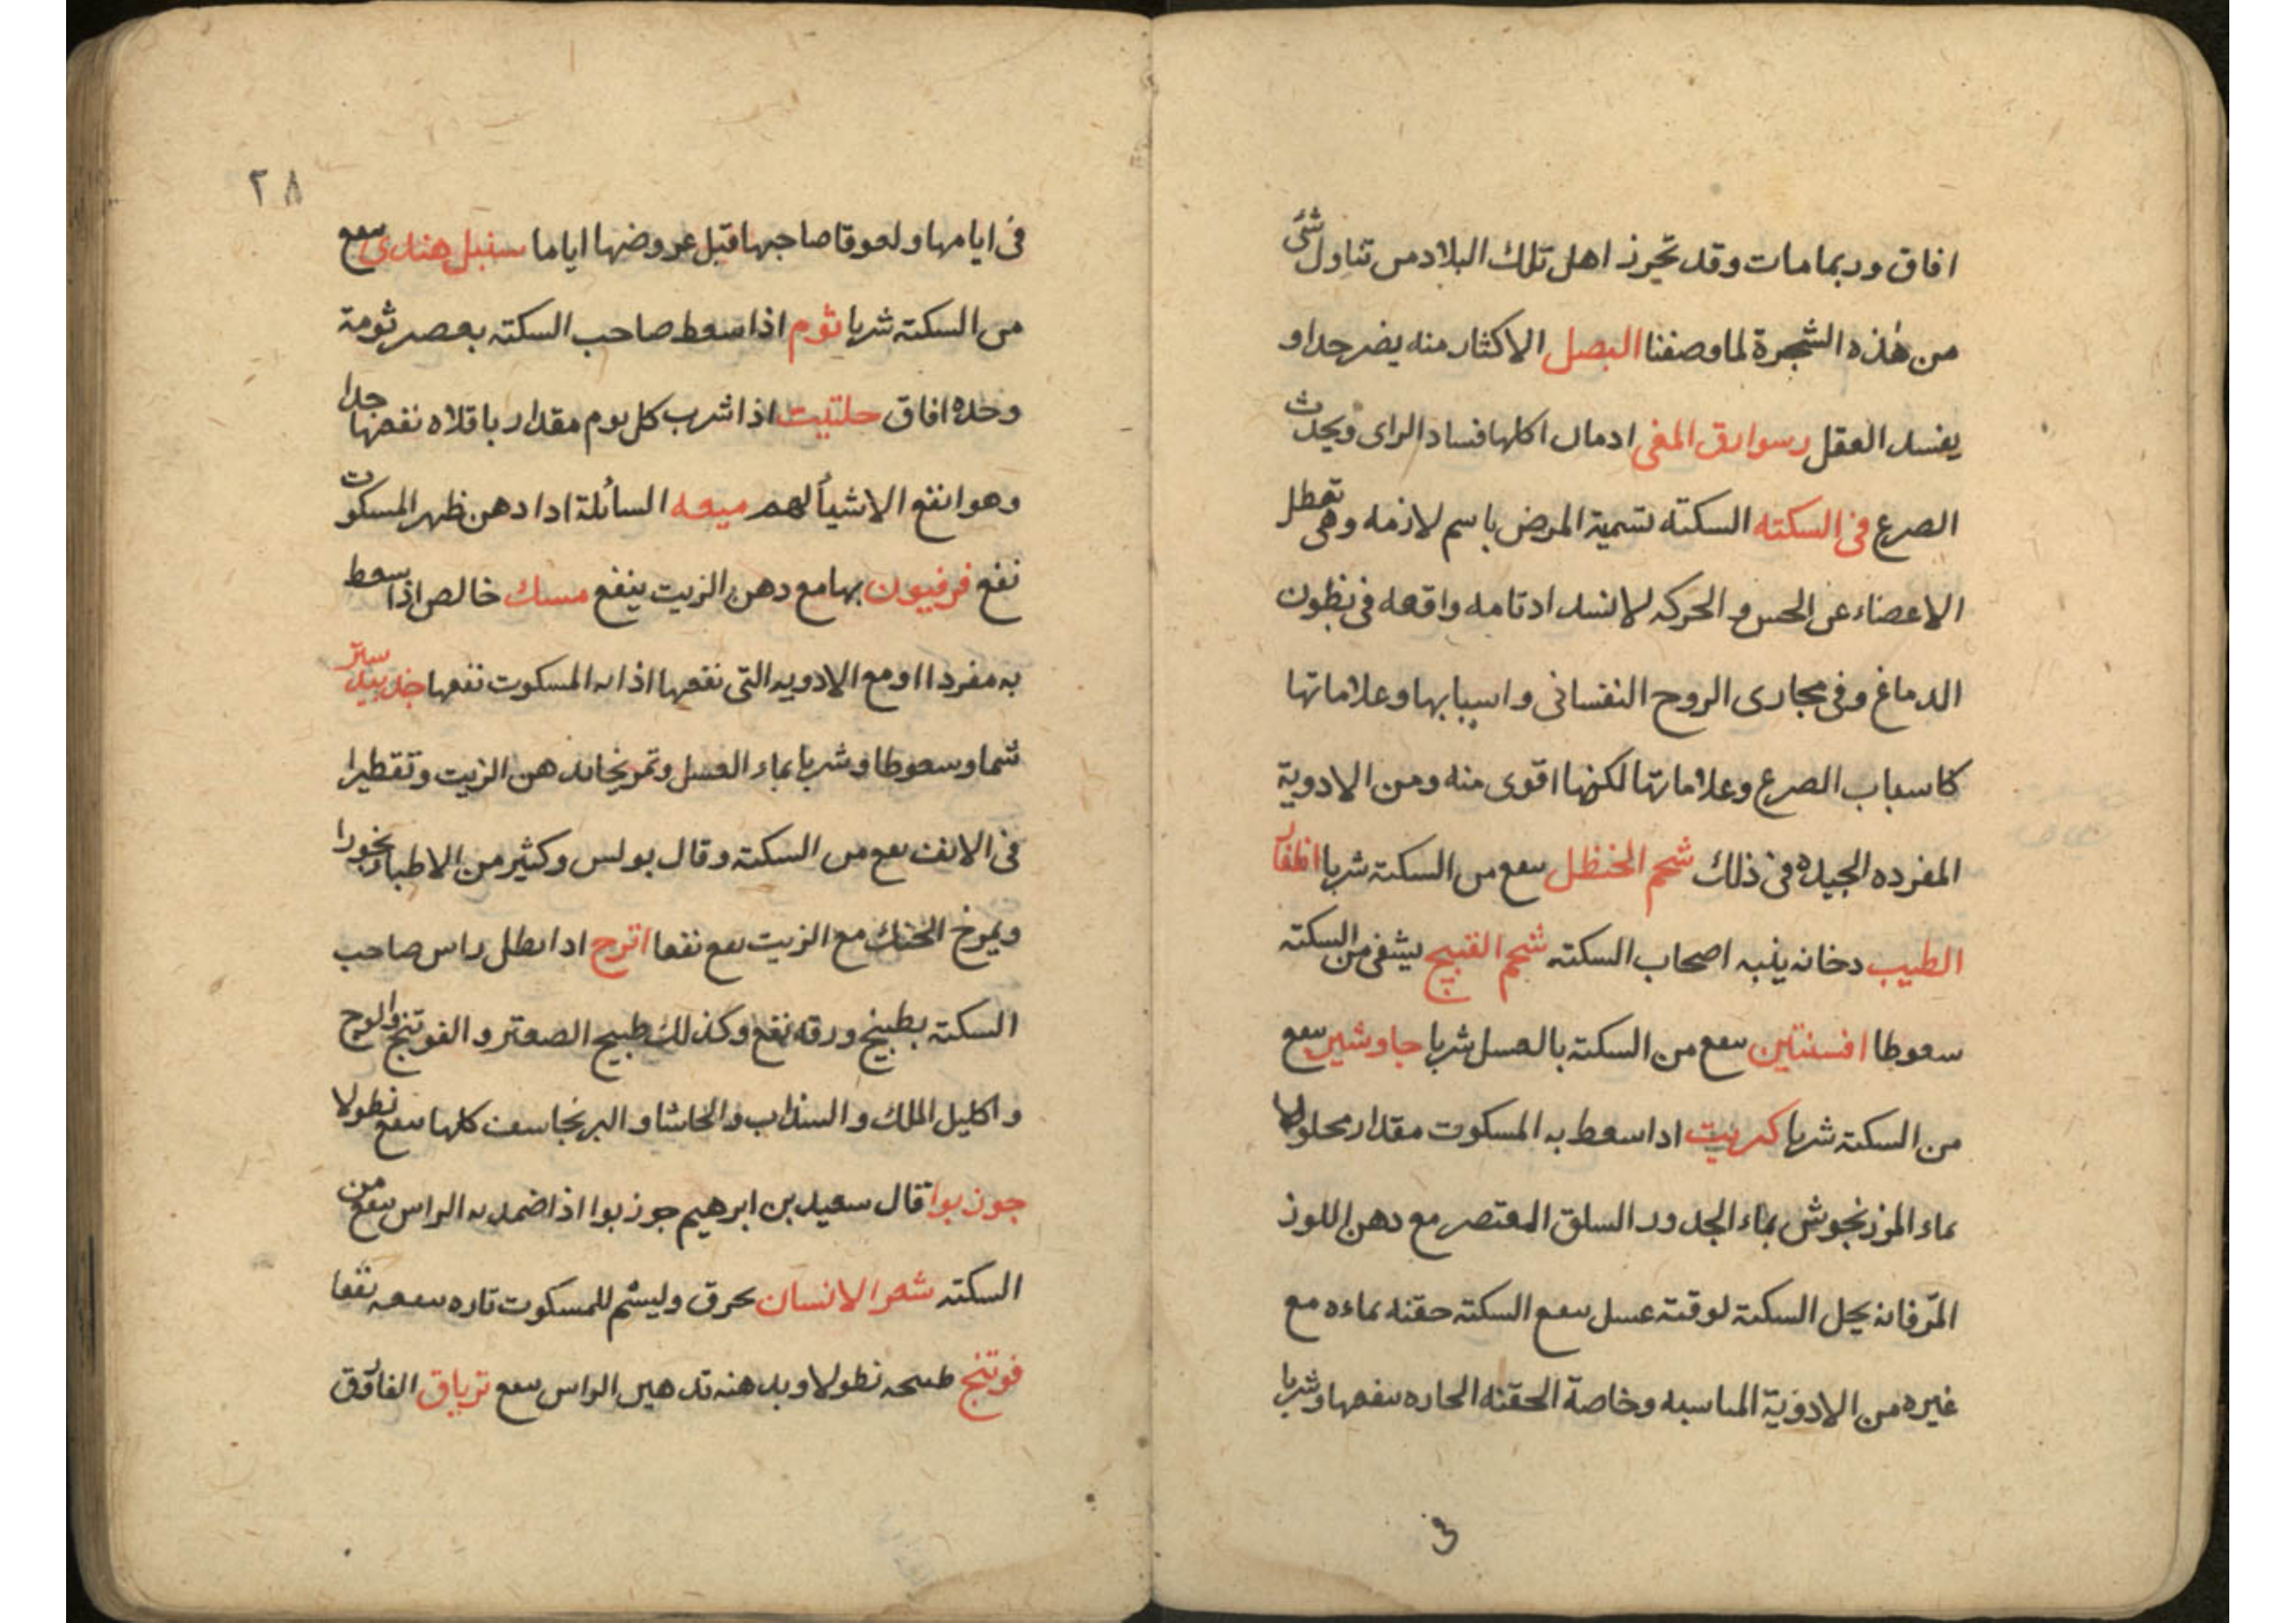 افاق وربما مات وقد تحرز اهل تلك البلاد من تناول شئ
من هذه الشجرة لما وصفنا البصل الاكثار منه يضر جدا و
يفسد العقل المغى ادمان اكلها فساد الراى ويحدث
الصرع فى السكته السكته تسمية المرض باسم لازمه وهى تعطل
الاعضاء عن الحس والحركه لانسداد تامه واقعه فى بطون
الدماغ وفى مجارى الروح النفسانى واسبابها وعلاماتها
كاسباب الصرع وعلاماتها لكنها اقوى منه ومن الادوية
المفرده الجيده فى ذلك شحم الحنظل ينفع من السكتة شربا اظفار
الطيب دخانه ينبه اصحاب السكته شحم القبيج يشفى من السكته
سعوطا افسنتين ينفع من السكتة بالعسل شربا جاوشير ينفع
من السكتة شربا كبريت اذا سعط به المسكوت مقدار محلولا
بماء المرزنجوش بماء الجدور السلق المعتصر مع دهن اللوز
المر فانه يحل السكتة لوقته عسل ينفع السكته حقنه بماءه مع
غيره من الادوية المناسبه وخاصة الحقنه الحاره ينفعها وشربا
٢٨
فى ايامها ولعوقا صاحبها قبل عروضها اياما سنبل هندى ينفع
من السكتة شربا ثوم اذا سعط صاحب السكته بعصر ثومة
وحده افاق حلتيت اذا شرب كل يوم مقدار باقلاه نفعها جدا
وهو انفع الاشيأ لهم ميعه السائلة اذا دهن ظهر المسكوت
نفع فرفيون بها مع دهن الزيت ينفع مسك خالص اذا سعط
به مفردا او مع الادويه التى نفعها اذا به المسكوت نفعها جندبيدستر
شما وسعوطا وشربا بماء العسل وتمريخا بدهن الزيت وتقطيرا
فى الانف ينفع من السكته وقال بولس وكثير من الاطباء بخورا
ويمرخ الحنك مع الزيت ينفع نفعا اترج اذا نطل راس صاحب
السكته بطبيخ ورقه نفع وكذلك طبيخ الصعتر والفوتنج والوج
واكليل الملك والسنداب والحاشا والبرنجاسف كلها ينفع نطولا
جوزبوا قال سعيد بن ابرهيم جوزبوا اذا ضمد به الراس ينفع من
السكته شعر الانسان يحرق وليشم للمسكوت تاره ينفعه نفعا
فوتنج طبيخه نطولا وبدهنه تدهين الراس ينفع ترياق الفاروق